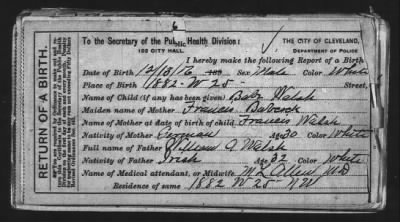 6
To the Secretary of the Public Health Division: THE CITY OF CLEVELAND,
122 CITY HALL. DEPARTMENT OF POLICE
I hereby make the following Report of a Birth
Date of Birth 12/13/16 Sex Male Color White
Place of Birth 1882 - W 25 - Street,
Name of Child (if any has been given) Baby Walsh
Maiden name of Mother Frances Babcock
Name of Mother at date of birth of child Frances Walsh
Nativity of Mother German Age 30 Color White
Full name of Father William J. Walsh
Nativity of Father Irish Age 32 Color White
Name of Medical attendant, or Midwife M L Allen MD
Residence of same 1882 W 25 - NW
RETURN OF A BIRTH.